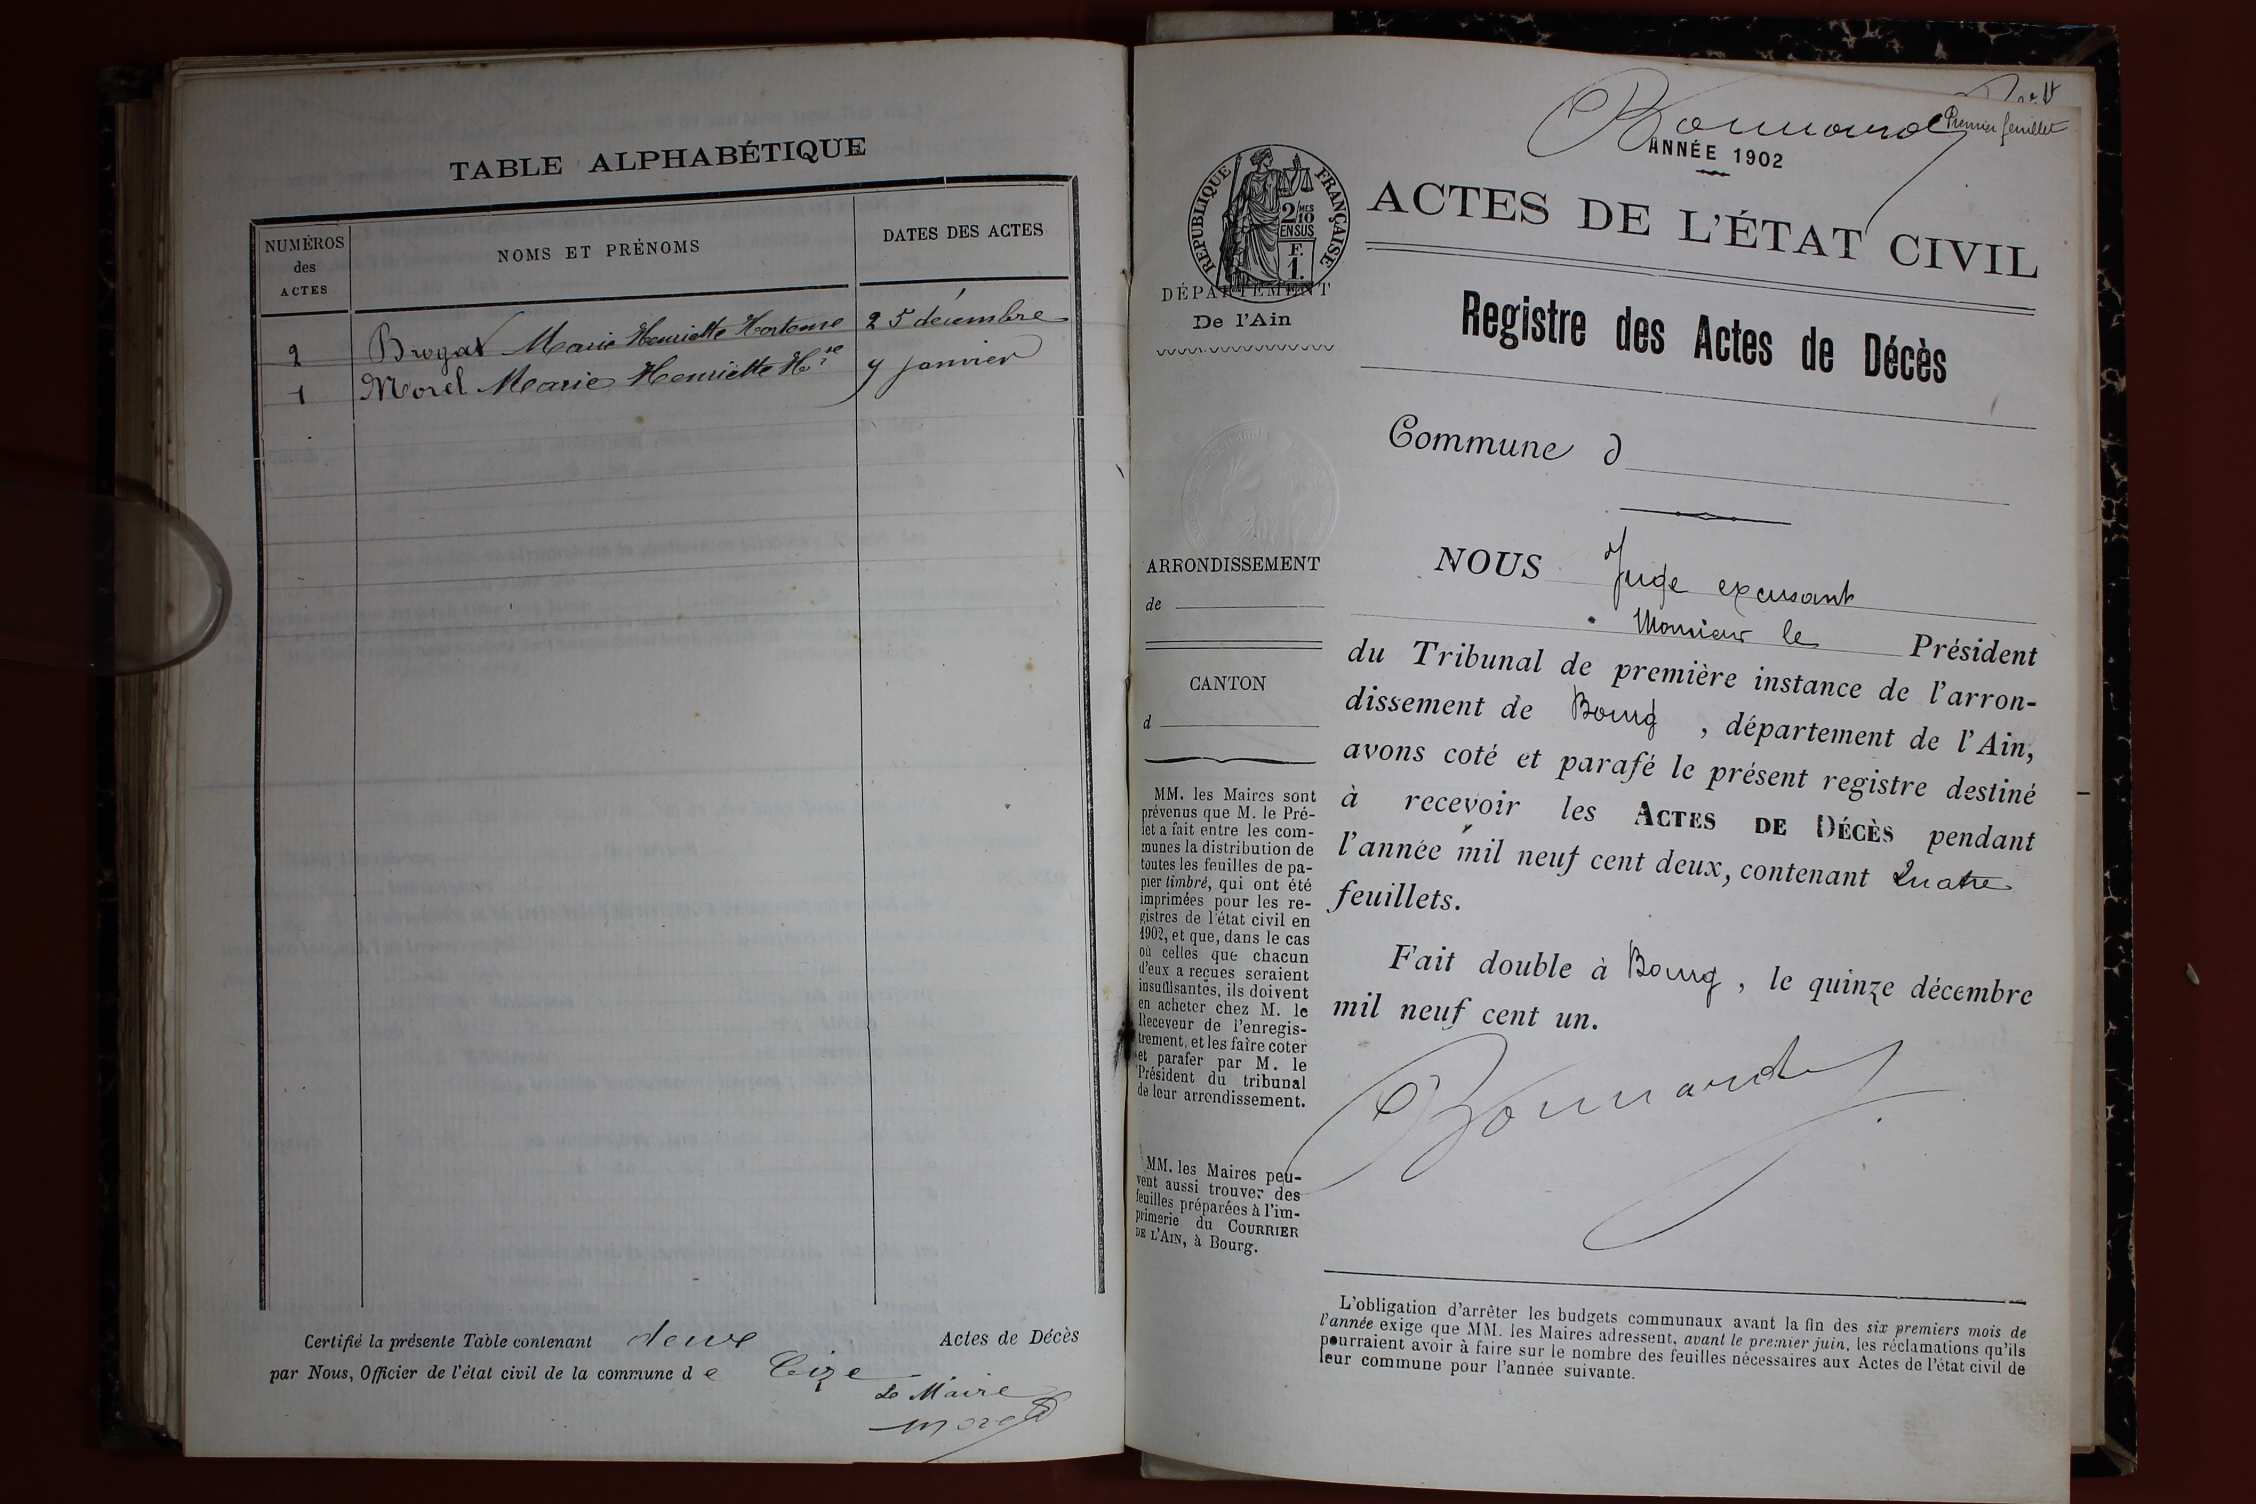 TABLE ALPHABÉTIQUE
NUMÉROS
des
ACTES
NOMS ET PRÉNOMS
DATES DES ACTES
2 Brogat Marie Henriette Hortense 25 décembre
1 Morel Marie Henriette Hse 7 janvier
Certifié la présente Table contenant deux Actes de Décès
par Nous, Officier de l'état civil de la commune de Cize
Le Maire
Morel
Bonnard
Premier feuillet
ANNÉE 1902
RÉPUBLIQUE FRANÇAISE
2/10
MES
EN SUS
F.
1.
ACTES DE L'ÉTAT CIVIL
DÉPARTEMENT
De l'Ain
Registre des Actes de Décès
Commune d
ARRONDISSEMENT
de
CANTON
d
MM. les Maires sont
prévenus que M. le Pré-
fet a fait entre les com-
munes la distribution de
toutes les feuilles de pa-
pier timbré, qui ont été
imprimées pour les re-
gistres de l'état civil en
1902, et que, dans le cas
où celles que chacun
d'eux a reçues seraient
insuffisantes, ils doivent
en acheter chez M. le
Receveur de l'enregis-
trement, et les faire coter
et parafer par M. le
Président du tribunal
de leur arrondissement.
MM. les Maires peu-
vent aussi trouver des
feuilles préparées à l'im-
primerie du COURRIER
DE L'AIN, à Bourg.
NOUS Juge excusant
Monsieur le Président
du Tribunal de première instance de l'arron-
dissement de Bourg, département de l'Ain,
avons coté et parafé le présent registre destiné
à recevoir les ACTES DE DÉCÈS pendant
l'année mil neuf cent deux, contenant Quatre
feuillets.
Fait double à Bourg, le quinze décembre
mil neuf cent un.
Bonnard
L'obligation d'arrêter les budgets communaux avant la fin des six premiers mois de
l'année exige que MM. les Maires adressent, avant le premier juin, les réclamations qu'ils
pourraient avoir à faire sur le nombre des feuilles nécessaires aux Actes de l'état civil de
leur commune pour l'année suivante.